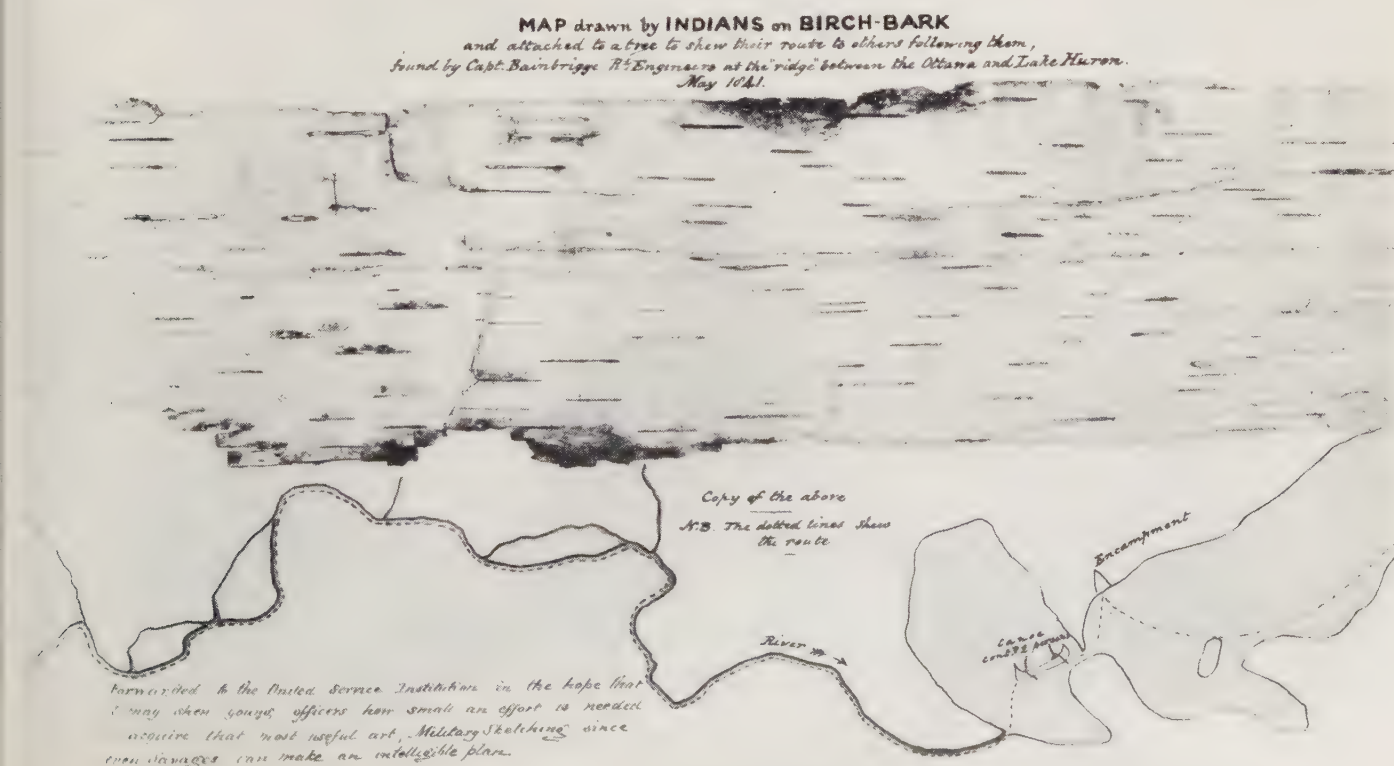 MAP drawn by INDIANS on BIRCH-BARK
and attached to a tree to shew their route to others following them,
found by Capt. Bainbrigge Rl. Engineers at the "ridge" between the Ottawa and Lake Huron.
May 1841.
Copy of the above
N.B. The dotted lines shew
the route
Encampment
Canoe
contg. 2 persons
River
Forwarded to the United Service Institution in the hope that
may shew young officers how small an effort is needed
acquire that most useful art, Military Sketching since
even savages can make an intelligible plan.